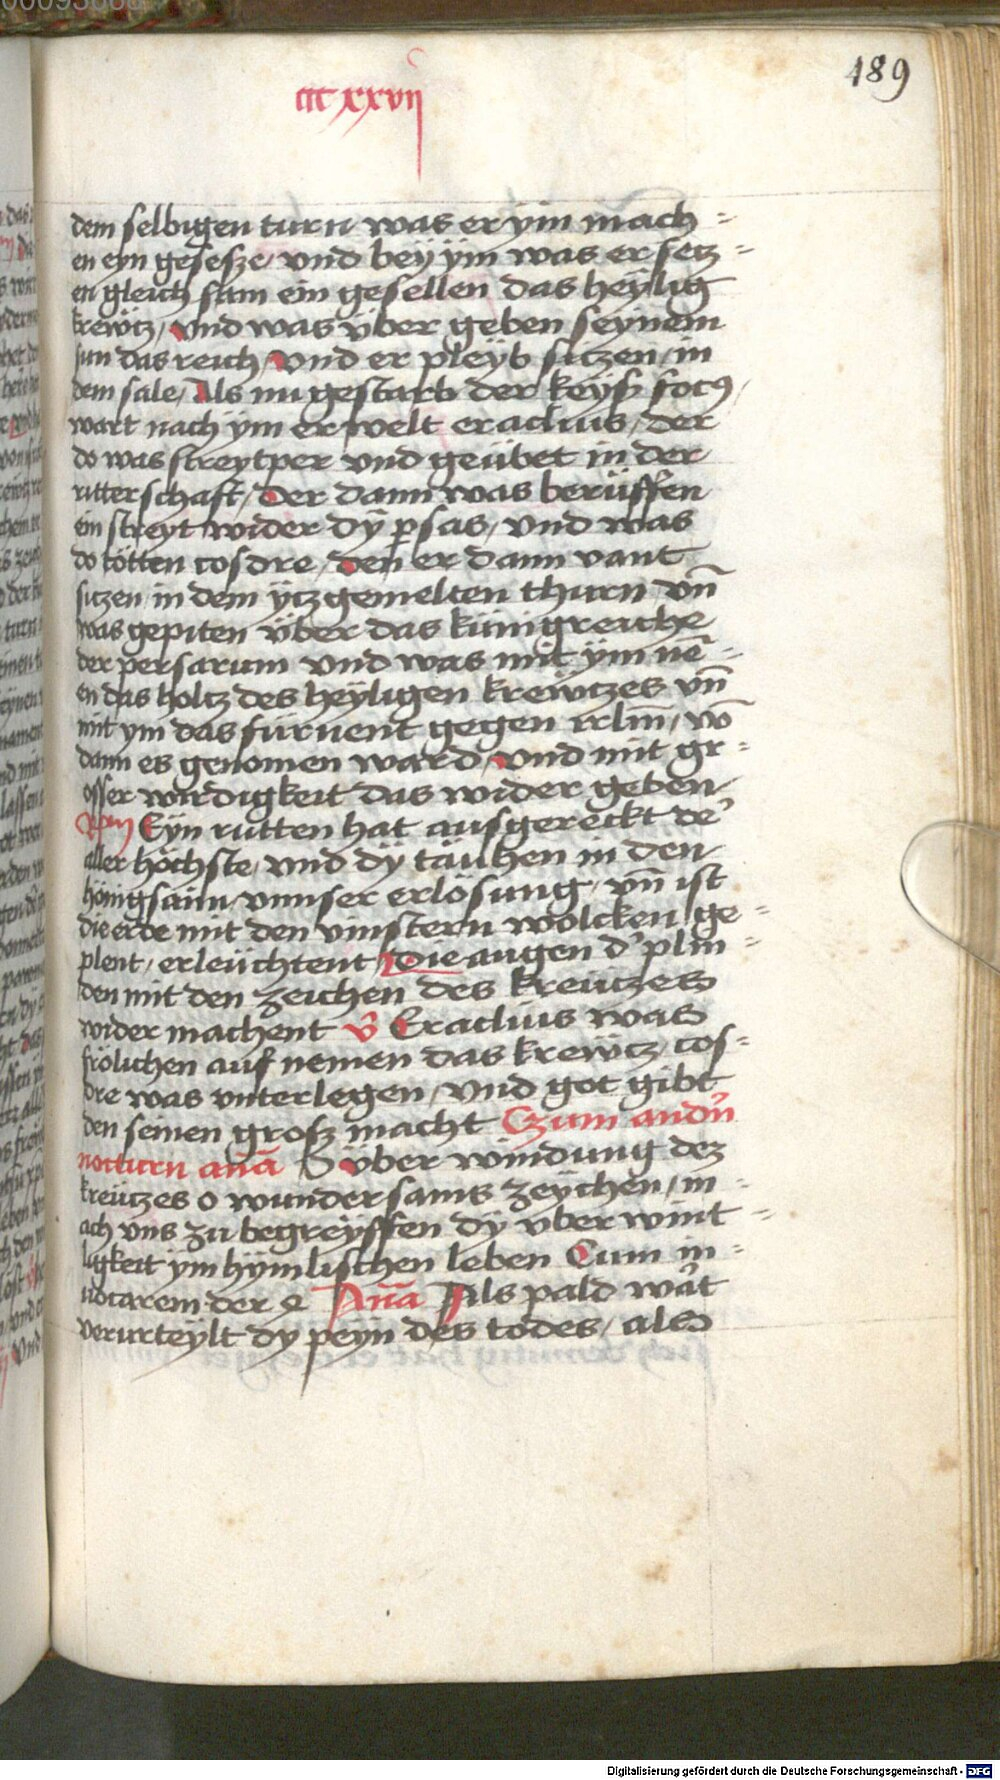 00093668
189
ccc xxvij
dem selbigen turn was er ym mach =
en eyn gesesze / vnd beÿ ÿm was er setz =
en gleich sam ein gesellen das heÿlig
krewtz / vnd was v̈ber geben seÿnem
sun das reich / vnd er pleÿb sitzen / in
dem sale / Als nu gestarb der keÿsz focꝰ /
wart nach ÿm er welt eraclius / der
do was streytper vnd geübet in der
ritterschaft / der dann was berüffen
ein streyt wider dÿ psas / vnd was
do tötten cosdre / den er dann vant
sitzen / in dem ÿtzgemelten thurn / vn̄
was gepiten v̈ber das künigreiche
der persarum vnd was mit ÿm nē =
en das holtz des heÿligen krewtzes vn̄
mit ym das fürüent gegen irl̄m / vō
dann es genomen ward / vnd mit gr =
osser wirdigkeit das wider geben
Rpm̄ Eÿn rutten hat ausgereckt de'
aller höchste / vnd dÿ täuhen in den
hönigsaim / vnnser erlösung / vn̄ ist
die erde mit den vinstern wolcken ge =
plent / erleüchtent / Die augen d' plin =
den mit den zeichen des kreützes
wider machent v̄ Eraclius was
frölichen auf nemen das krewtz / cos =
dre was vnterlegen / vnd got gibt
den seinen grosz macht Czum andn̄
nocturn anā O v̈ber windung dez
kreützes o wundersams zeÿchen / m =
ach vns zu begreÿffen dÿ vber wint =
ligkeit ym hÿmlischen leben Cum in =
uocarem der ꝛ An̄a Als pald wa't
verurteÿlt dy peyn des todes / als
Digitalisierung gefördert durch die Deutsche Forschungsgemeinschaft - DFG